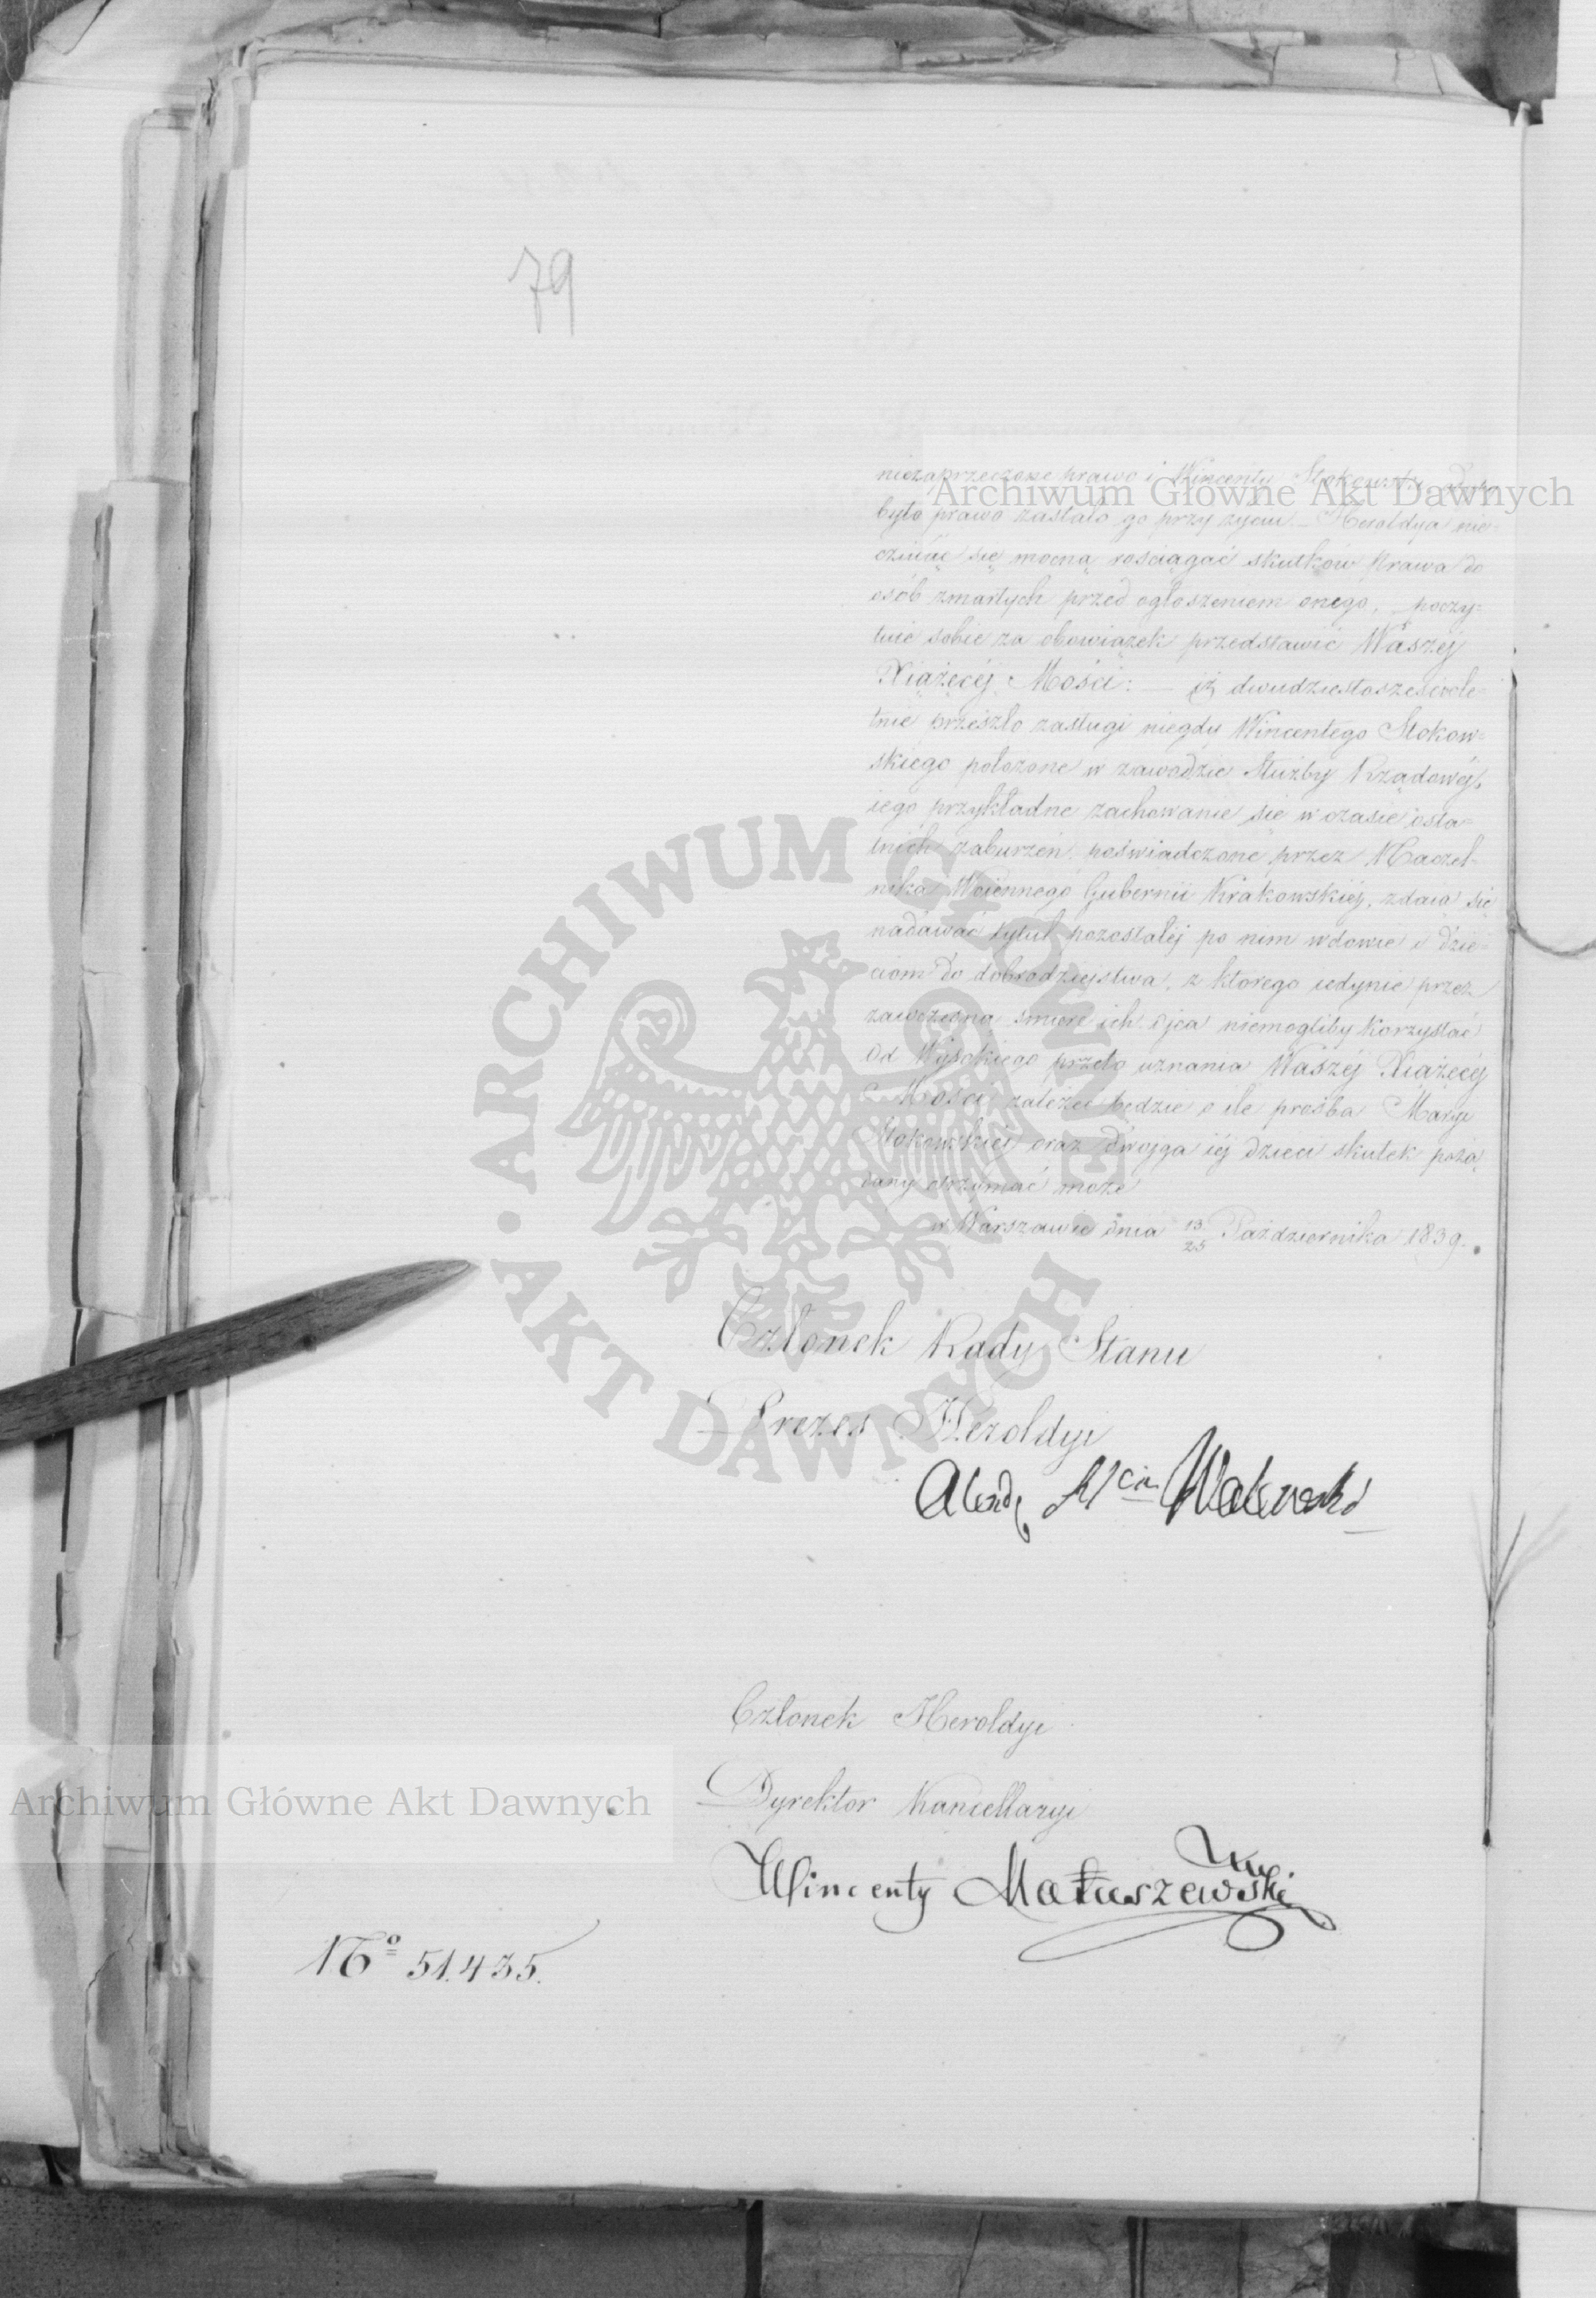 79
niezaprzeczone prawo i Wincenty Stokowski gdyby
było prawo zastało go przy życiu. – Heroldya nie=
czuiąc się mocną rościągać skutków Prawa do
osób zmarłych przed ogłoszeniem onego, poczy=
tuie sobie za obowiązek przedstawić Waszéj
Xiążęcéj Mości: – iż dwudziestosześciole=
tnie przeszło zasługi niegdy Wincentego Stokow=
skiego położone w zawodzie Służby Rządowéj,
iego przykładne zachowanie się w czasie osta=
tnich zaburzeń, poświadczone przez Naczel=
nika Woiennego Gubernii Krakowskiéj, zdaią się
nadawać tytuł pozostałéj po nim wdowie i dzie=
ciom do dobrodzieystwa, z którego iedynie przez
zawczesną śmierć ich ojca niemogliby korzystać
Od Wysokiego przeto uznania Waszéj Xiążęcéj
Mości zależeć będzie o ile prośba Maryi
Stokowskiéj oraz dwojga iéj dzieci skutek pożą
dany otrzymać może
w Warszawie dnia 13/25 Października 1839.
Członek Rady Stanu
Prezes Heroldyi
Alexd. Walewski
Członek Heroldyi
Dyrektor Kancellaryi
Wincenty Matuszewski
No 51.435.
Archiwum Główne Akt Dawnych
Archiwum Główne Akt Dawnych
ARCHIWUM GŁÓWNE · AKT DAWNYCH ·